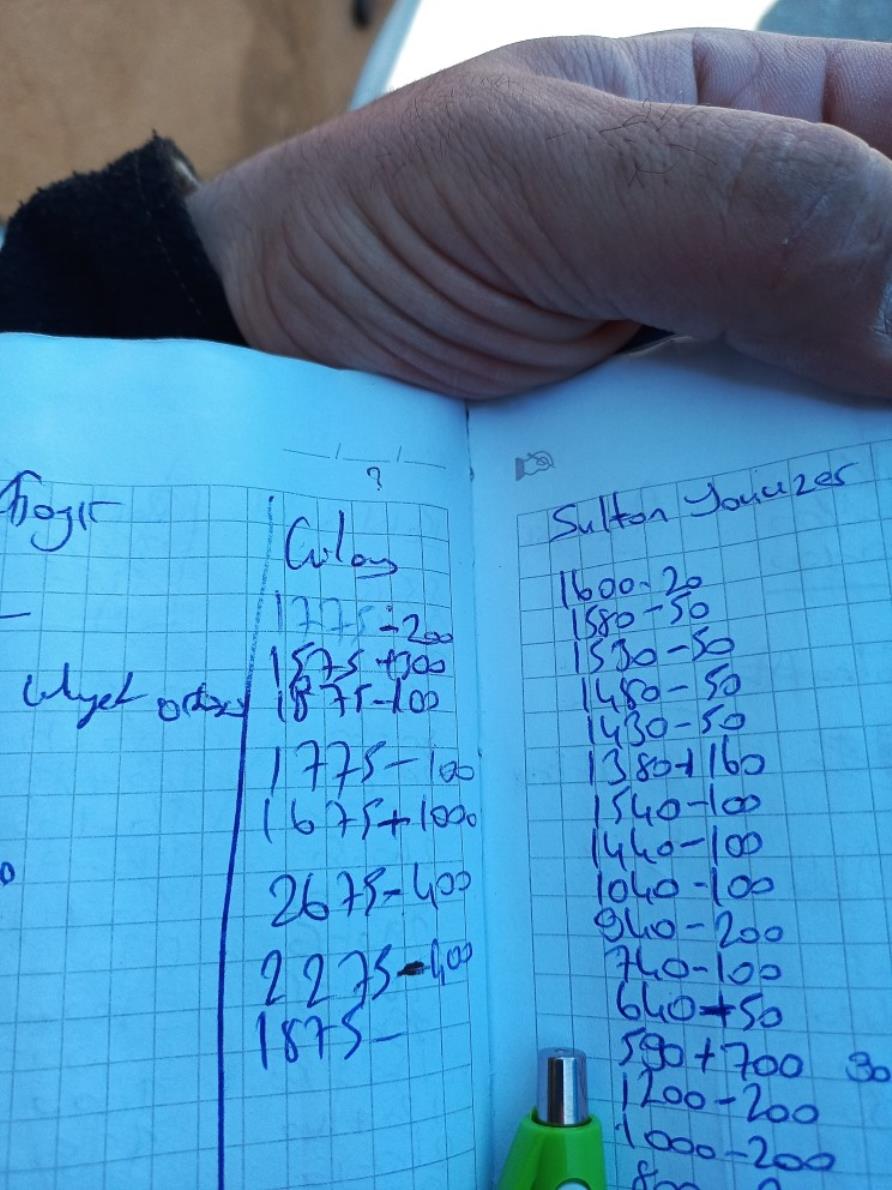 1775-200
1575+300
1875-100
1775-100
1675+1000
2675-400
2275-400
1875-
Sulton
1600-20
1580-50
1530-50
1480-50
1430-50
1380+160
1540-100
1440-100
1040-100
940-200
740-100
640+50
590+700 30
1200-200
1000-200